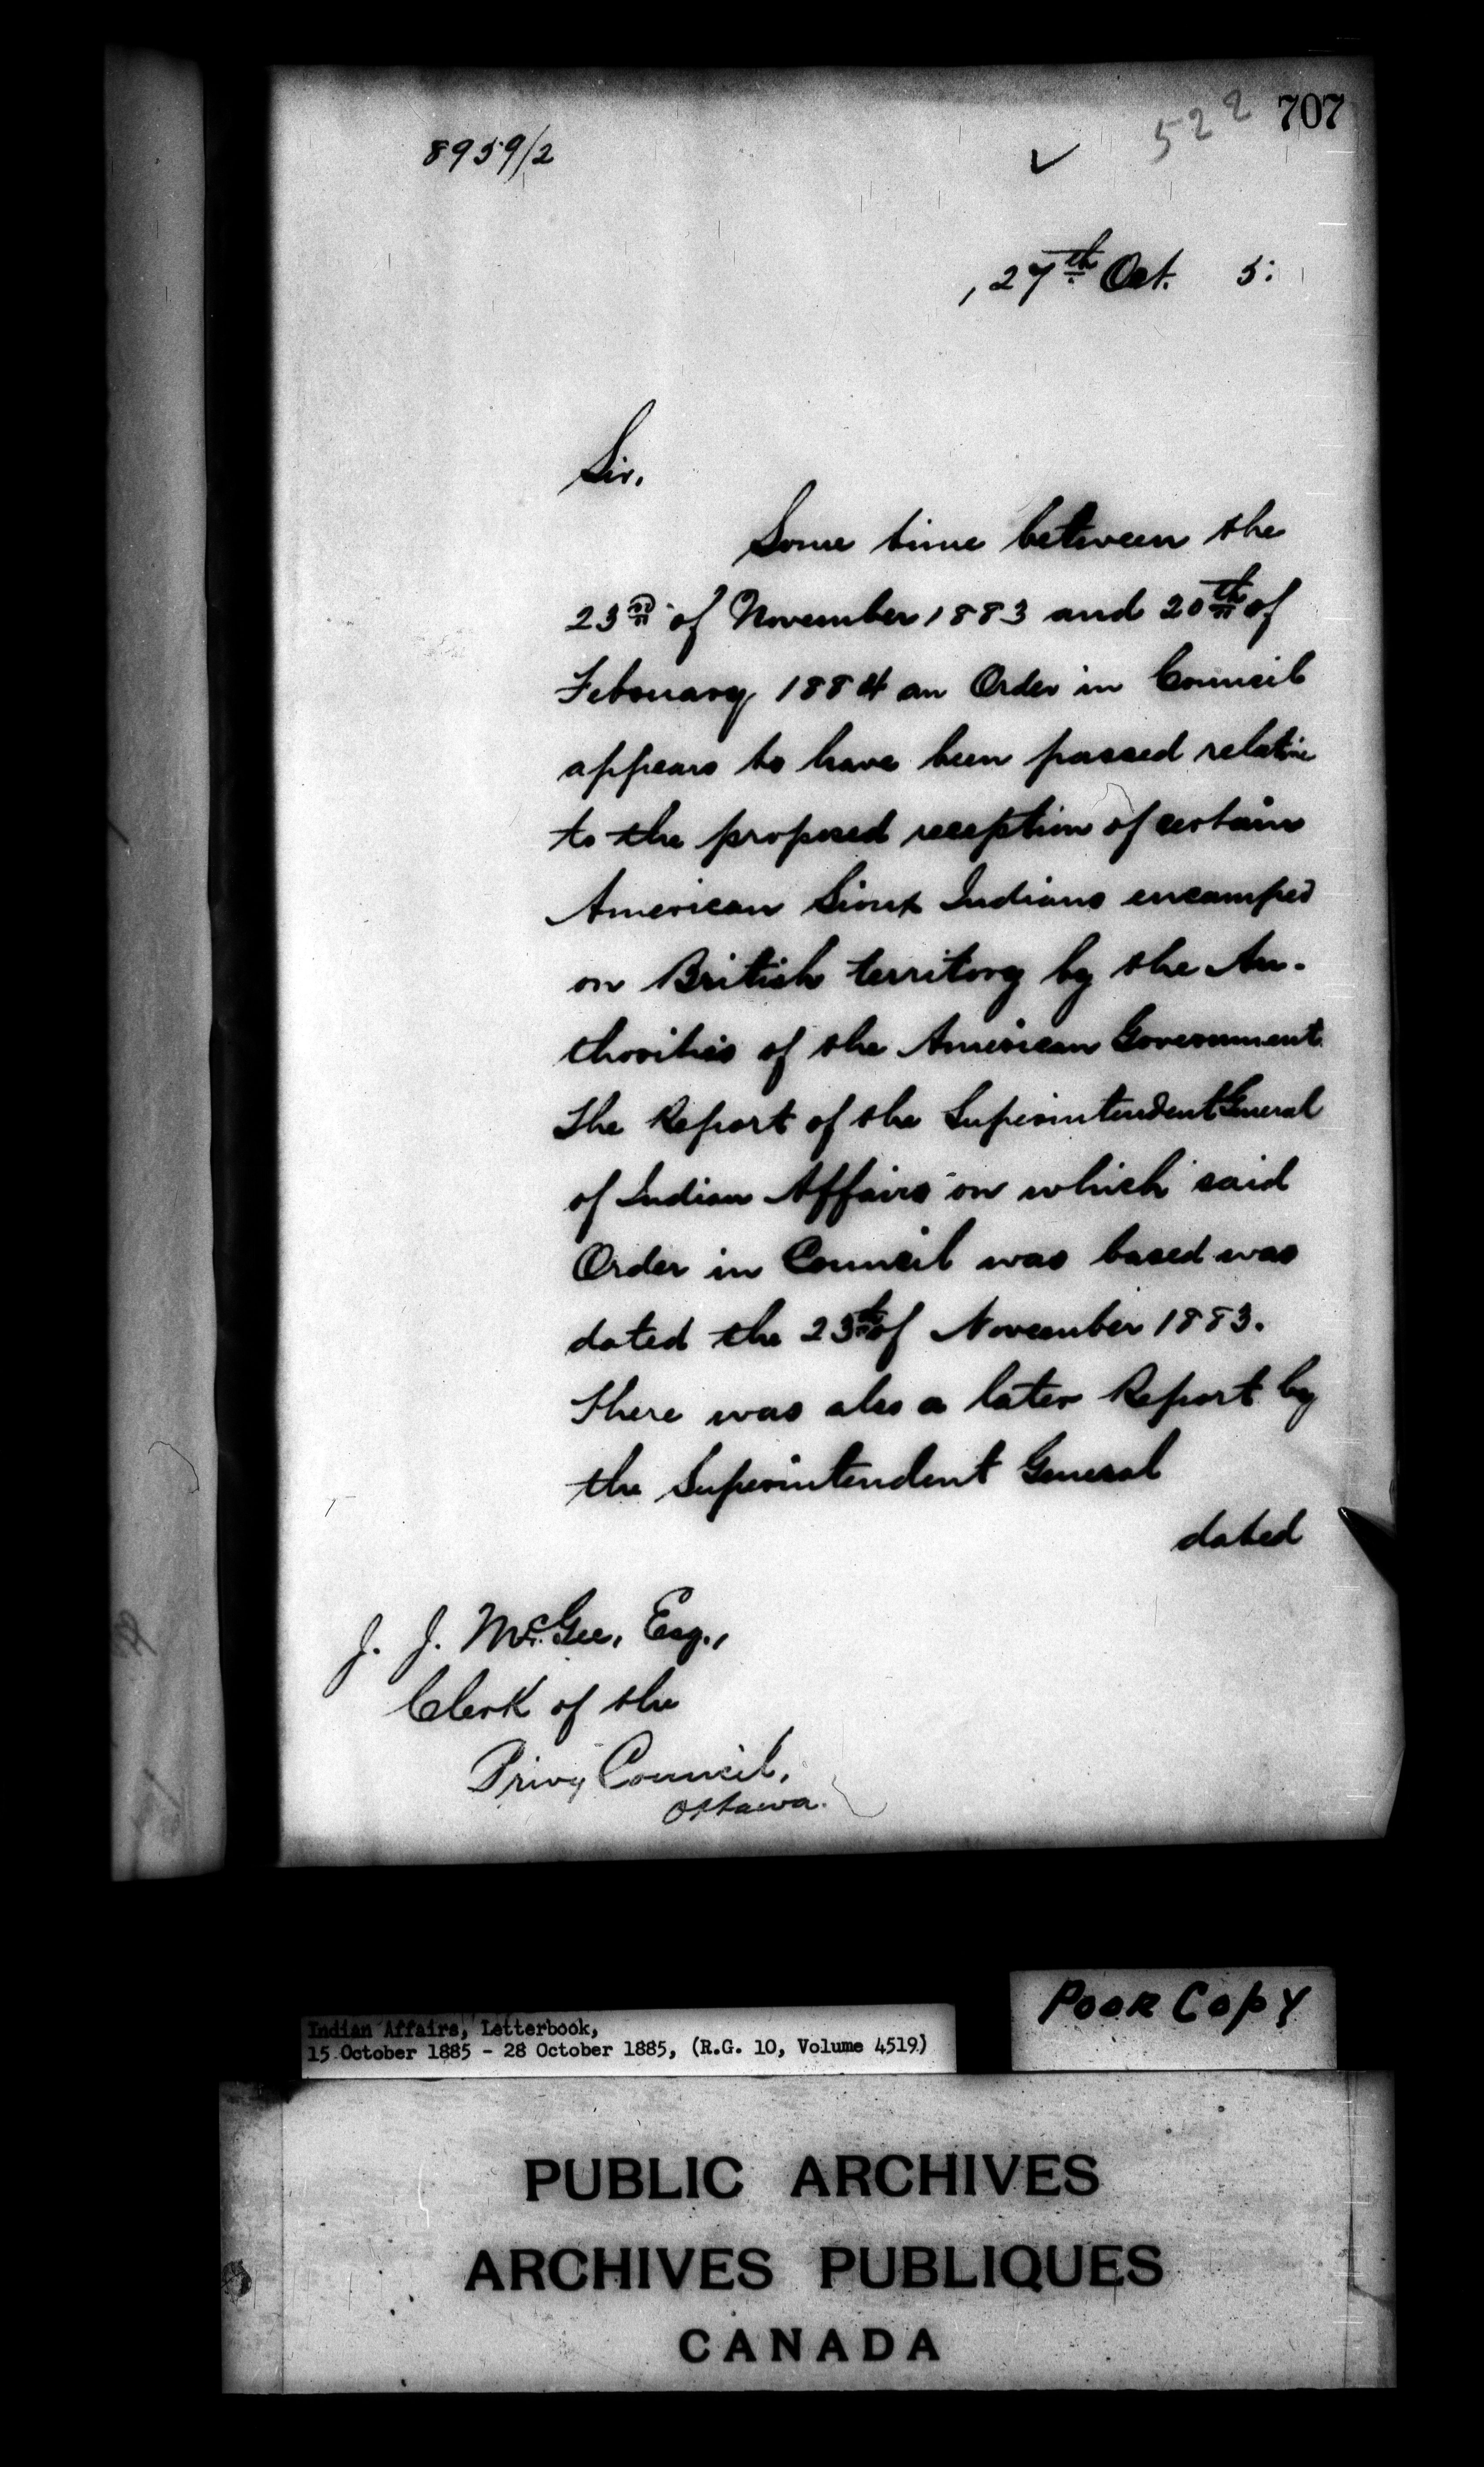 707
522
8959/2
, 27th Oct. 5:
Sir,
Some time between the
23rd of November 1883 and 20th of
February 1884 an Order in Council
appears to have been passed relative
to the proposed reception of certain
American Sioux Indians encamped
on British territory by the Au-
thorities of the American Government.
The Report of the Superintendent General
of Indian Affairs on which said
Order in Council was based was
dated the 23rd of November 1883.
There was also a later Report by
the Superintendent General
dated
J. J. McGee, Esq.,
Clerk of the
Privy Council,
Ottawa.
Poor Copy
Indian Affairs, Letterbook,
15 October 1885 - 28 October 1885, (R.G. 10, Volume 4519)
PUBLIC ARCHIVES
ARCHIVES PUBLIQUES
CANADA